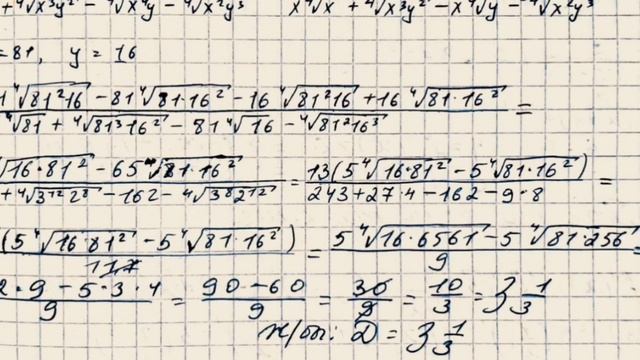 + ⁴√x³y² − ⁴√x⁴y − ⁴√x²y³ x⁴√x + ⁴√x³y² − x⁴√y − ⁴√x²y³
=81, y = 16
⁴√81²16 − 81 ⁴√81·16² − 16 ⁴√81²16 + 16 ⁴√81·16² =
⁴√81 + ⁴√81³16² − 81 ⁴√16 − ⁴√81²16³
√16·81² − 65 ⁴√81·16² = 13(5 ⁴√16·81² − 5 ⁴√81·16²) =
+ ⁴√3¹²2⁸ − 162 − ⁴√3⁸2¹² 243 + 27·4 − 162 − 9·8
(5 ⁴√16·81² − 5 ⁴√81·16²) = 5 ⁴√16·6561 − 5 ⁴√81·256 =
117 9
2·9 − 5·3·4 = 90 − 60 = 30 = 10 = 3 1/3
9 9 9 3
Ж/бы: D = 3 1/3